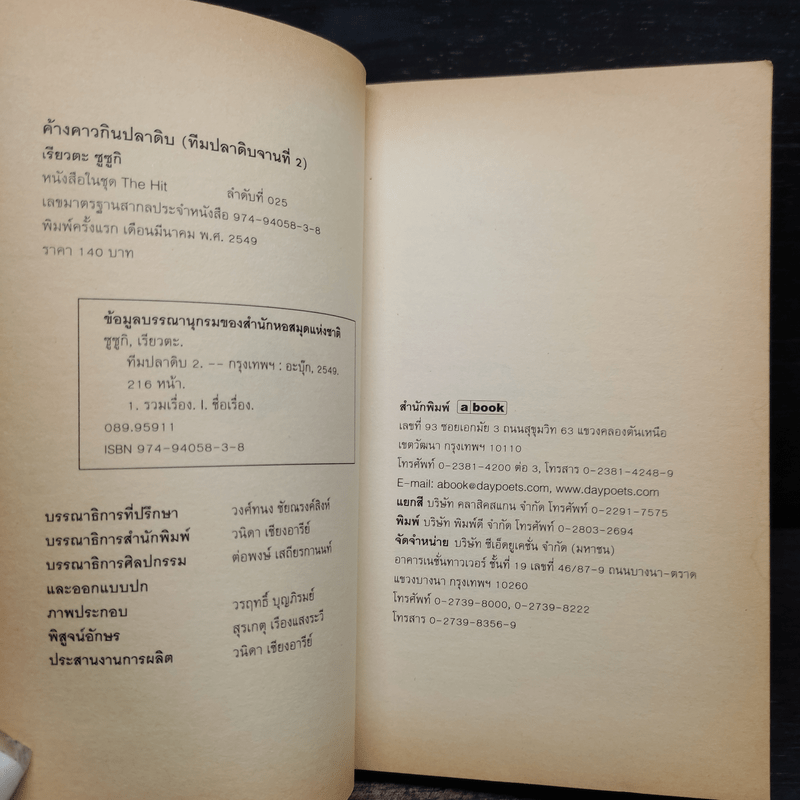 ค้างคาวกินปลาดิบ (ทีมปลาดิบจานที่ 2)
เรียวตะ ซูซูกิ
หนังสือในชุด The Hit ลำดับที่ 025
เลขมาตรฐานสากลประจำหนังสือ 974-94058-3-8
พิมพ์ครั้งแรก เดือนมีนาคม พ.ศ. 2549
ราคา 140 บาท
ข้อมูลบรรณานุกรมของสำนักหอสมุดแห่งชาติ
ซูซูกิ, เรียวตะ.
ทีมปลาดิบ 2. -- กรุงเทพฯ : อะบุ๊ก, 2549.
216 หน้า.
1. รวมเรื่อง. I. ชื่อเรื่อง.
089.95911
ISBN 974-94058-3-8
บรรณาธิการที่ปรึกษา วงศ์ทนง ชัยณรงค์สิงห์
บรรณาธิการสำนักพิมพ์ วนิดา เชียงอารีย์
บรรณาธิการศิลปกรรม ต่อพงษ์ เสถียรกานนท์
และออกแบบปก
ภาพประกอบ วรฤทธิ์ บุญภิรมย์
พิสูจน์อักษร สุรเกตุ เรืองแสงระวี
ประสานงานการผลิต วนิดา เชียงอารีย์
สำนักพิมพ์ a book
เลขที่ 93 ซอยเอกมัย 3 ถนนสุขุมวิท 63 แขวงคลองตันเหนือ
เขตวัฒนา กรุงเทพฯ 10110
โทรศัพท์ 0-2381-4200 ต่อ 3, โทรสาร 0-2381-4248-9
E-mail: abook@daypoets.com, www.daypoets.com
แยกสี บริษัท คลาสิคสแกน จำกัด โทรศัพท์ 0-2291-7575
พิมพ์ บริษัท พิมพ์ดี จำกัด โทรศัพท์ 0-2803-2694
จัดจำหน่าย บริษัท ซีเอ็ดยูเคชั่น จำกัด (มหาชน)
อาคารเนชั่นทาวเวอร์ ชั้นที่ 19 เลขที่ 46/87-9 ถนนบางนา-ตราด
แขวงบางนา กรุงเทพฯ 10260
โทรศัพท์ 0-2739-8000, 0-2739-8222
โทรสาร 0-2739-8356-9